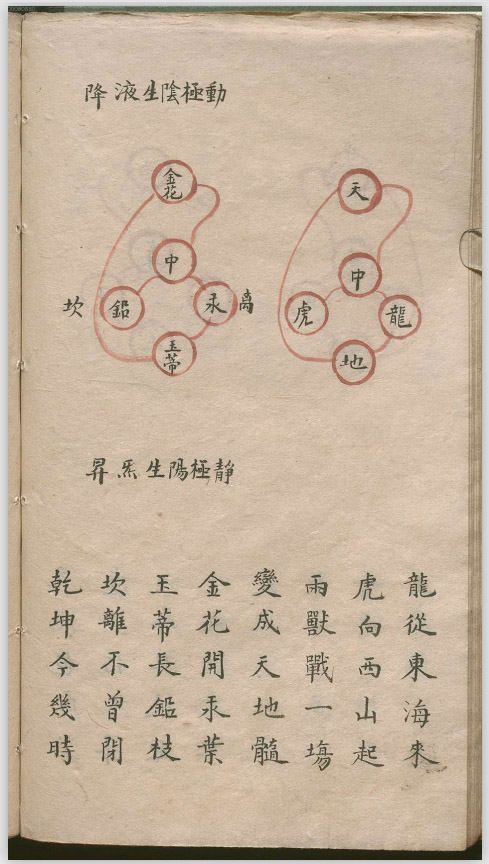 動極陰生液降
天
中
龍
虎
地
金花
中
离
汞
鉛
坎
玉蒂
静極陽生炁昇
龍從東海來
虎向西山起
兩獸戰一塲
變成天地髓
金花開汞葉
玉蒂長鉛枝
坎離不曾閉
乾坤今幾時